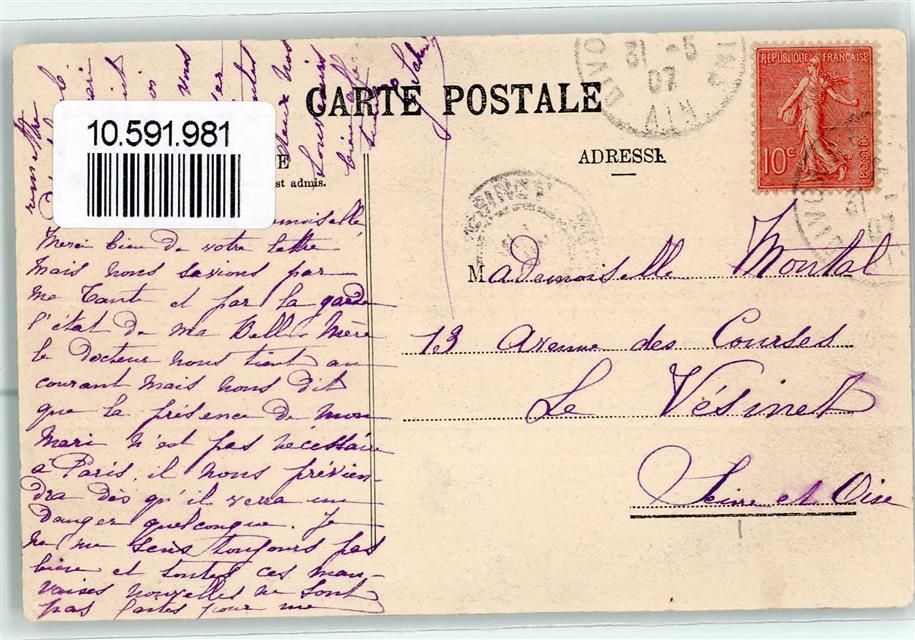 CARTE POSTALE
10.591.981
E
st admis.
ADRESSE
RÉPUBLIQUE FRANÇAISE
10c
POSTES
31 -5
07
AIN
DIVO
VÉSINET
Mademoiselle Montal
13 Avenue des Courses
Le Vésinet
Seine et Oise
moiselle
Merci bien de votre lettre
mais nous savions par
ma Tante et par la garde
l'état de ma Belle Mère
le Docteur nous tient au
courant mais nous dit
que la présence de mon
Mari n'est pas nécessaire
à Paris. il nous prévien-
dra dès qu'il verra un
danger quelconque. Je
ne me sens toujours pas
bien et toutes ces mau-
vaises nouvelles ne sont
pas faites pour me
remettre
vous